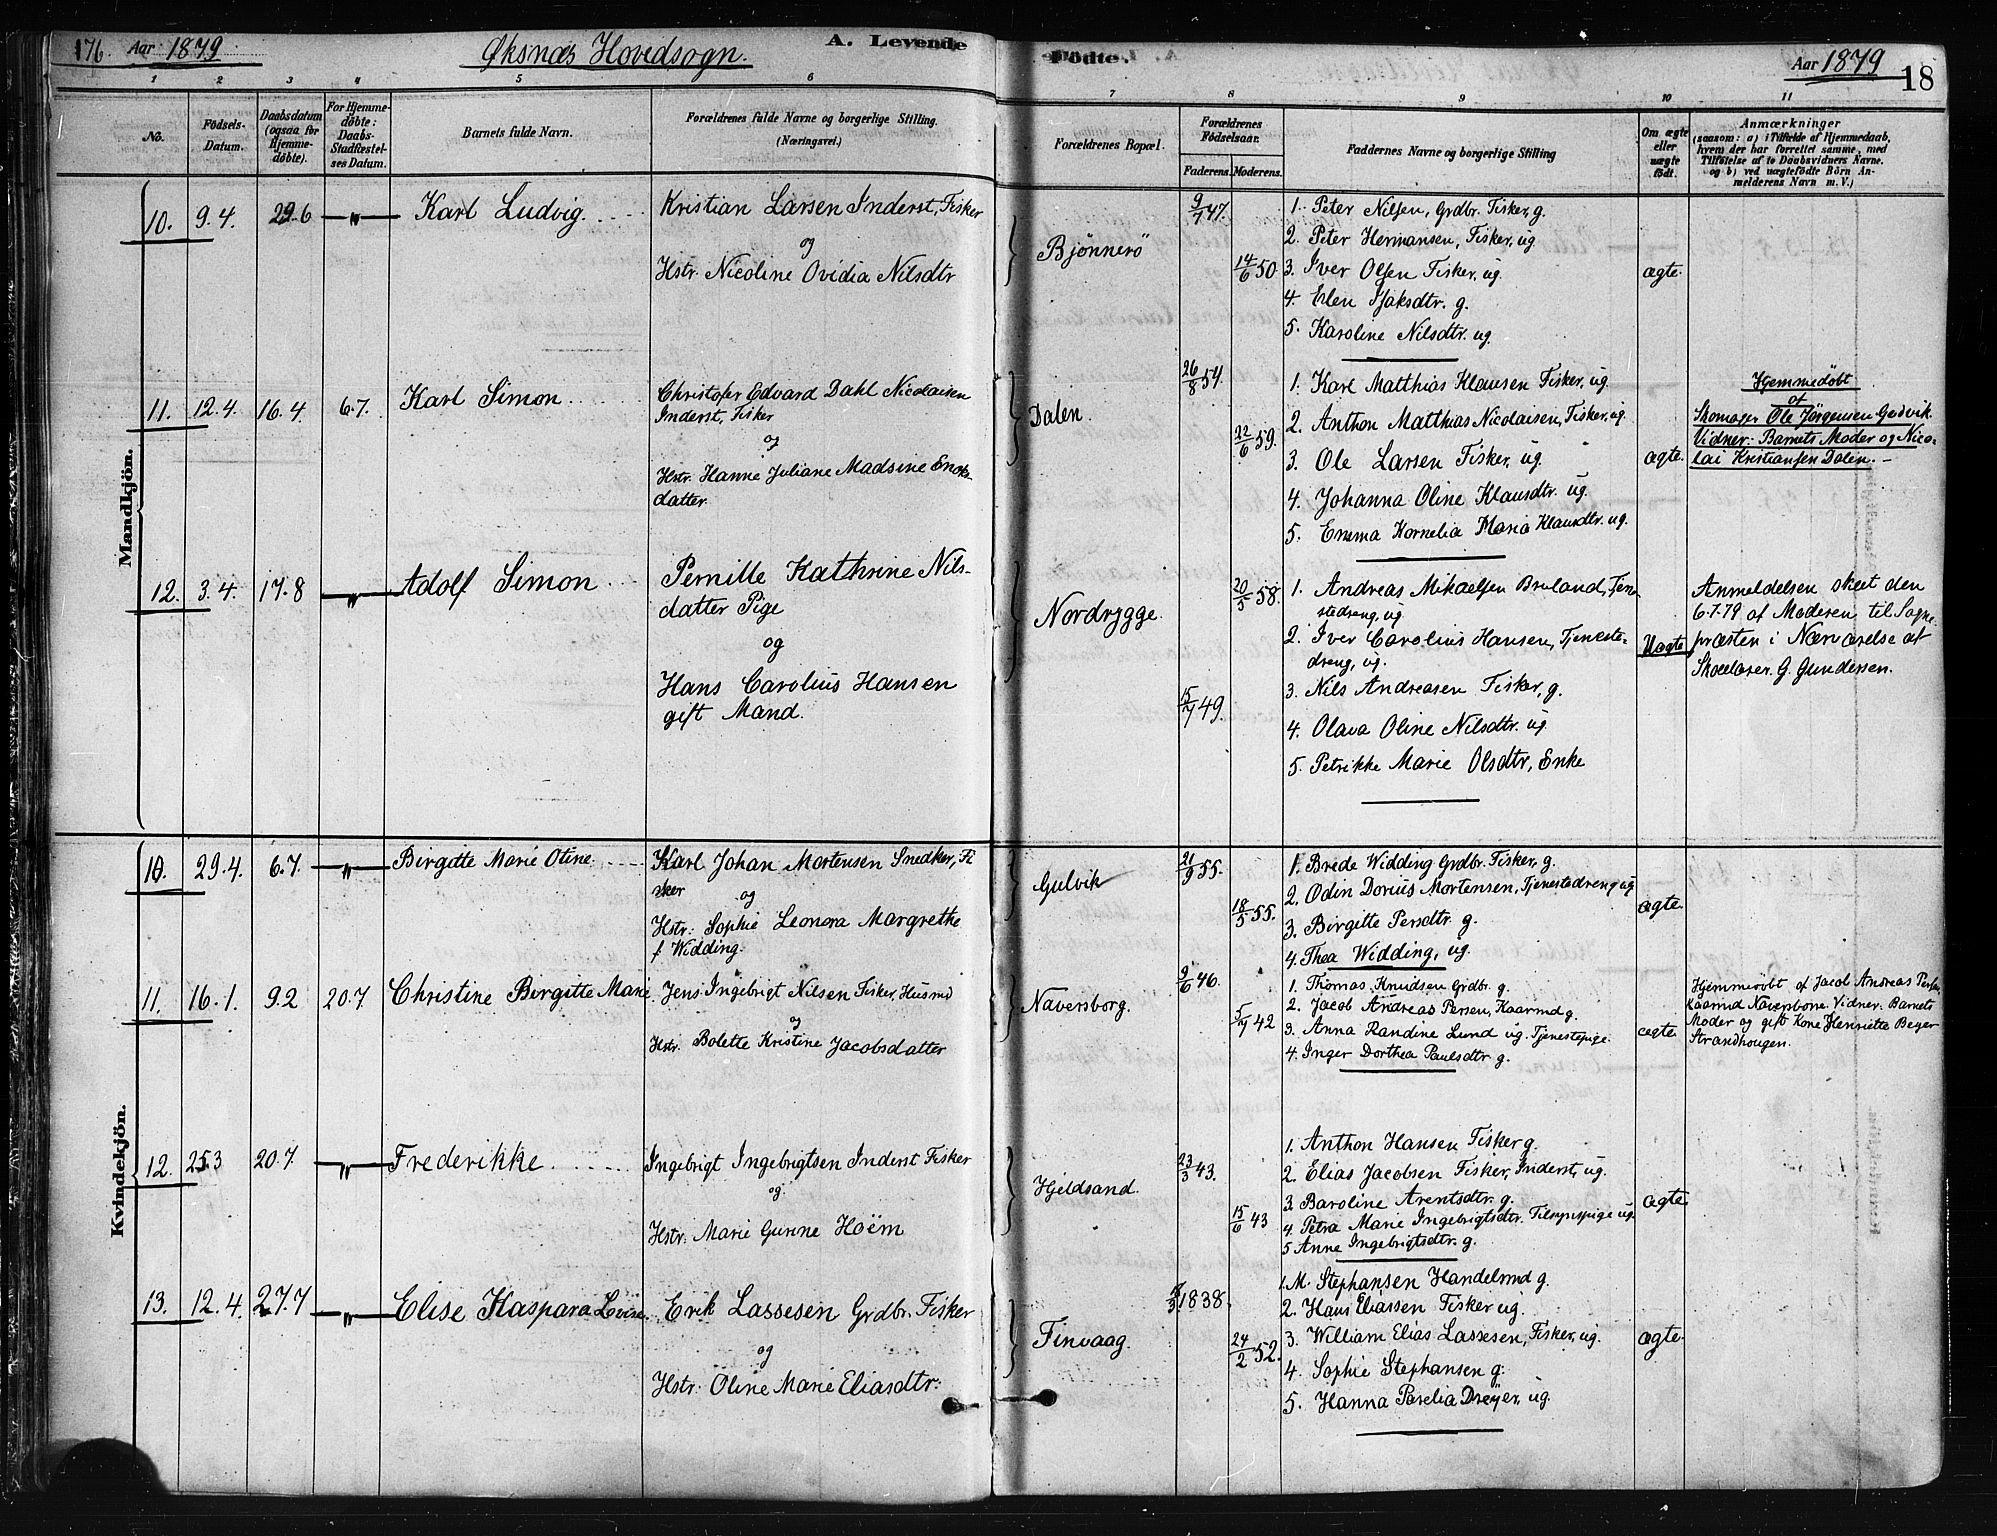 176. Aar 1879 Øksnæs Hovedsogn. A. Levende
Fødte. Aar 1879 18
1 2 3 4 5 6
7 8 9 10 11
No.
Fødsels-
Datum.
Daabsdatum
(ogsaa for
Hjemme-
döbte).
For Hjemme-
döbte:
Daabs-
Stadfæstel-
ses Datum.
Barnets fulde Navn.
Forældrenes fulde Navne og borgerlige Stilling.
(Næringsvei.)
Forældrenes Bopæl.
Forældrenes
Födselsaar.
Faderens. Moderens.
Faddernes Navne og borgerlige Stilling
Om ægte
eller
uægte
födt.
Anmærkninger
(saasom: a) i Tilfælde af Hjemmedaab,
hvem der har forrettet samme, med
Tilföielse af to Daabsvidners Navne.
og b) ved uægtefödte Börn An-
melderens Navn m. V.)
Mandkjön.
10. 9.4. 29.6 —"— Karl Ludvig.
Kristian Larsen Inderst, Fisker
og
Hstr. Nicoline Ovidia Nilsdtr
Bjönnerö
9/7 47.
14/6 50.
1. Peter Nilsen, Grdbr. Fisker, g.
2. Peter Hermansen, Fisker, ug.
3. Iver Olsen Fisker, ug.
4. Elen Isaksdtr. g.
5. Karoline Nilsdtr. ug.
ægte.
11. 12.4. 16.4 6.7. Karl Simon
Christofer Edvard Dahl Nicolaisen
Inderst, Fisker
og
Hstr. Hanne Juliane Madsine Enoks-
datter.
Dalen.
26/8 54.
22/6 59.
1. Karl Matthias Klausen Fisker, ug.
2. Anthon Matthias Nicolaisen, Fisker, ug.
3. Ole Larsen Fisker, ug.
4. Johanna Oline Klausdtr. ug.
5. Emma Kornelia Maria Klausdtr. ug.
ægte.
Hjemmedøbt
af
Skomager Ole Jørgensen Gulvik.
Vidner: Barnets Moder og Nico-
lai Kristiansen Dalen. –
12. 3.4. 17.8 —"— Adolf Simon
Pernille Kathrine Nils-
datter Pige
og
Hans Carolius Hansen
gift Mand.
Nordrygge.
20/5 58.
15/7 49.
1. Andreas Mikaelsen Bruland, Tjene-
stedreng, ug.
2. Iver Carolius Hansen, Tjeneste-
dreng, ug.
3. Nils Andreasen Fisker, g.
4. Olava Oline Nilsdtr. ug.
5. Petrikke Marie Olsdtr, Enke
Uægte
Anmeldelsen skeet den
6.7.79 af Moderen til Sogne-
præsten i Nærværelse af
Skolelærer. G. Gundersen.
Kvindekjön.
10. 29.4. 6.7. —"— Birgitte Marie Otine.
Karl Johan Mortensen Snedker, Fi
sker
og
Hstr: Sophie Leonora Margrethe
f. Widding.
Gulvik
21/9 55.
18/5 55.
1. Brede Widding Grdbr. Fisker, g.
2. Odin Dorius Mortensen, Tjenestedreng ug
3. Birgitte Persdtr. g.
4. Thea Widding, ug.
ægte.
11. 16.1. 9.2 20.7 Christine Birgitte Marie
Jens Ingebrigt Nilsen Fisker, Husmd
og
Hstr. Bolette Kristine Jacobsdatter
Naversborg.
9/6 46.
42
1. Thomas Knudsen Grdbr. g.
2. Jacob Andreas Persen, Kaarmd g.
3. Anna Randine Lund ug. Tjenestepige.
4. Inger Dorthea Paulsdtr g.
ægte
Hjemmedøbt af Jacob Andreas Persen
Kaarmd Naversborg. Vidner. Barnets
Moder og gift Kone Henriette Beyer
Strandhougen.
12. 25.3 20.7. —"— Frederikke.
Ingebrigt Ingebrigtsen Inderst Fisker
og.
Hstr: Marie Gurine Hoëm
Hjeldsand.
23/3 43.
15/6 43
1. Anthon Hansen Fisker g.
2. Elias Jacobsen Fisker, Inderst, ug.
3. Baroline Arentsdtr. g.
4. Petra Marie Ingebrigtsdtr. Tilsynspige ug.
5 Anne Ingebrigtsdtr. g.
ægte
13. 12.4. 27.7 —"— Elise Kaspara Lovise.
Erik Lassesen Grdbr. Fisker
og
Hstr: Oline Marie Eliasdtr.
Finvaag.
1838.
24/2 52.
1. M. Stephansen Handelsmd g.
2. Hans Eliassen Fisker ug.
3. William Elias Lassesen, Fisker, ug.
4. Sophie Stephansen g.
5. Hanna Parelia Dreyer, ug.
ægte.